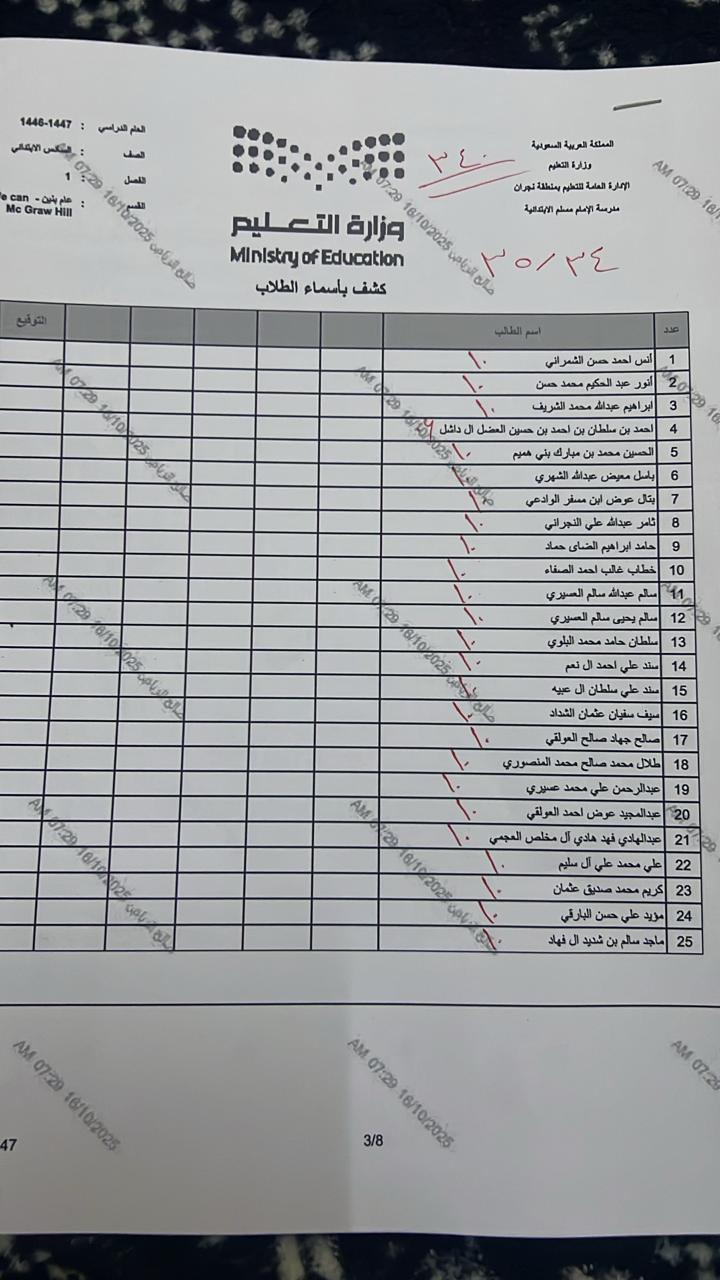 المملكة العربية السعودية
وزارة التعليم
الإدارة العامة للتعليم بمنطقة نجران
مدرسة الإمام مسلم الابتدائية
٣٤٠
٣٥/٣٤
وزارة التعليم
Ministry of Education
كشف بأسماء الطلاب
العام الدراسي : 1446-1447
الصف : السادس الابتدائي
الفصل : 1
القسم : عام بنين - We can
Mc Graw Hill
عدد اسم الطالب التوقيع
1 أنس احمد حسن الشمراني ١٠
2 أنور عبد الحكيم محمد حسن ١٠
3 ابراهيم عبدالله محمد الشريف ١٠
4 احمد بن سلطان بن احمد بن حسين العضل ال داشل
5 الحسين محمد بن مبارك بني هميم ١٠
6 باسل معيض عبدالله الشهري
7 بتال عوض ابن مسفر الوادعي
8 ثامر عبدالله علي النجراني ١٠
9 حامد ابراهيم الضاى حماد ١٠
10 خطاب غالب احمد الصفاء ١٠
11 سالم عبدالله سالم العسيري ١٠
12 سالم يحيى سالم العسيري ١٠
13 سلطان حامد محمد البلوي ١٠
14 سند علي احمد ال نعم ١٠
15 سند علي سلطان ال عبيه ١٠
16 سيف سفيان عثمان الشداد ١٠
17 صالح جهاد صالح العولقي ١٠
18 طلال محمد صالح محمد المنصوري ١٠
19 عبدالرحمن علي محمد عسيري ١٠
20 عبدالمجيد عوض احمد العولقي ١٠
21 عبدالهادي فهد هادي آل مخلص العجمي ١٠
22 علي محمد علي آل سليم ١٠
23 كريم محمد صديق عثمان ١٠
24 مؤيد علي حسن البارقي ١٠
25 ماجد سالم بن شديد ال فهاد ١٠
3/8
47
AM 07:29 16/10/2025